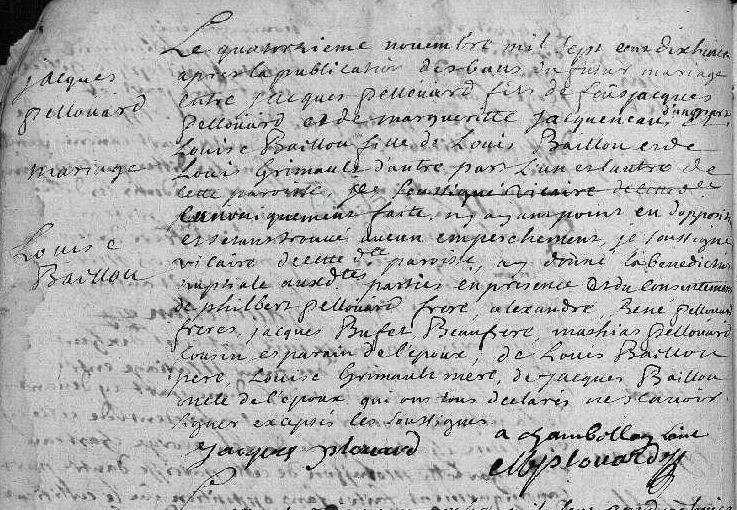 Le quatorzieme novembre mil sept cent dixhuit
jacques
pellouard
mariage
Louise
Baillou
apres la publication des bans du futur mariage
entre jacques pellouard fils de feus jacques
pellouard et de margueritte jacqueneau, d'une part
Louise Baillou fille de Louis Baillou et de
Louis Grimault d'autre part l'un et l'autre de
cette paroisse, je soussigné vicaire de cette dte
canoniquement faite, n'y ayant point eu d'opposit
et setant trouvé aucun empeschement, je soussigné
vicaire de cette dte paroisse, ay donné la benediction
nuptiale aux dtes parties en presence et du consentement
de philbert pellouard frere, alexandre, René pellouard
freres, jacques Bufet Beaufrere mathias pellouard
Cousin, et parain de l'epoux, de Louis Baillou
pere, Louise Grimault mere, de jacques Baillou
oncle de l'epoux qui ont tous declarés ne scavoir
signer exceptés les soussignes
jacques plouard